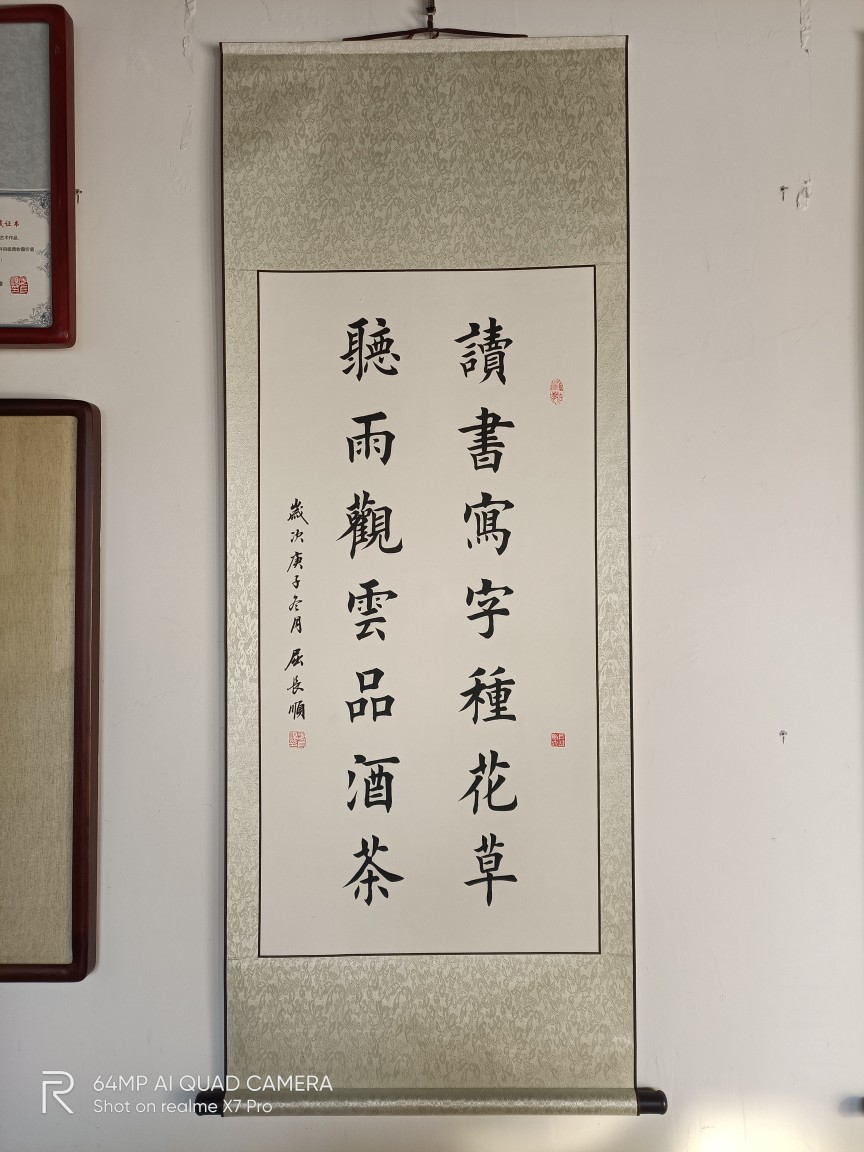 讀書寫字種花草
聽雨觀雲品酒茶
歲次庚子冬月 屈長順
證书
艺术作品,
64MP AI QUAD CAMERA
Shot on realme X7 Pro